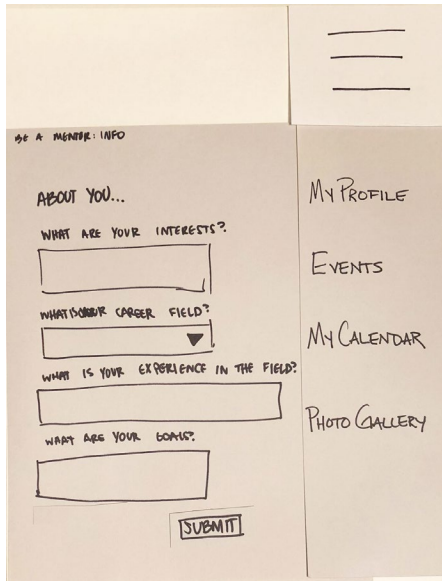 BE A MENTOR: INFO
ABOUT YOU...
WHAT ARE YOUR INTERESTS?
WHAT IS YOUR CAREER FIELD?
WHAT IS YOUR EXPERIENCE IN THE FIELD?
WHAT ARE YOUR GOALS?
SUBMIT
MY PROFILE
EVENTS
MY CALENDAR
PHOTO GALLERY